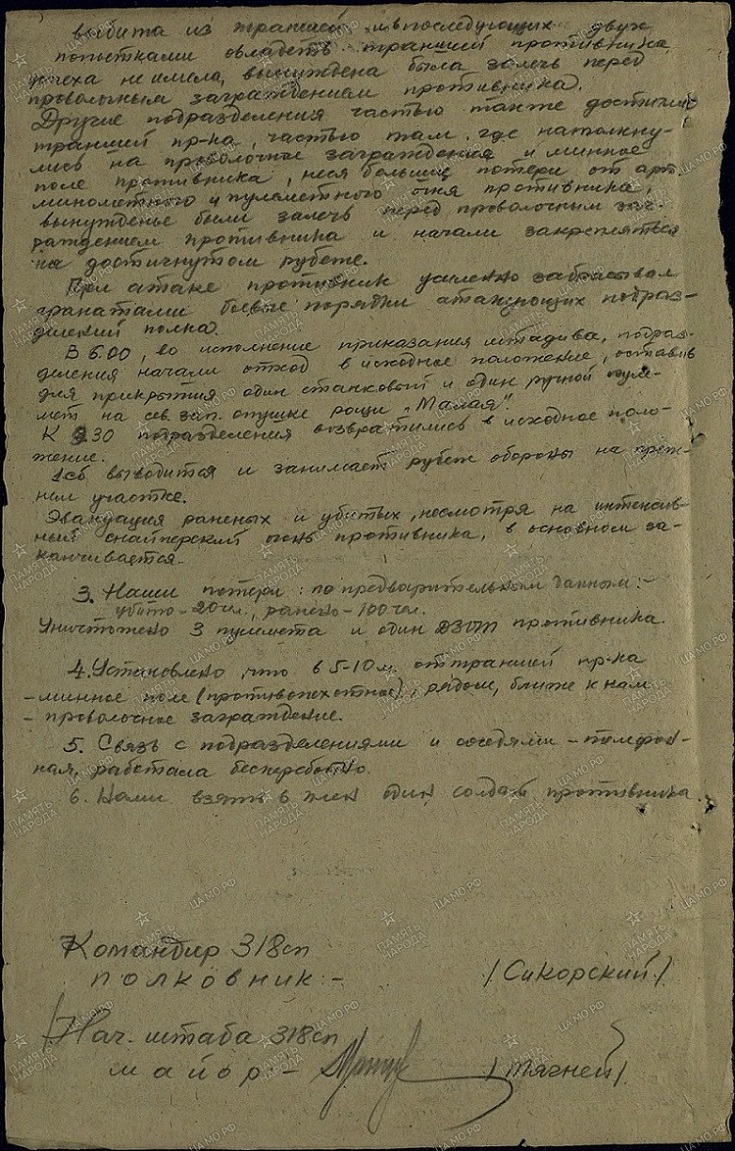 выбита из траншей и в последующих двух
попытками овладеть траншей противника
успеха не имела, вынуждена была залечь перед
проволочным заграждением противника.
Другие подразделения частью также достигли
траншей пр-ка, частью там, где натолкну-
лись на проволочное заграждения и минное
поле противника, неся большие потери от арт.
минометного и пулеметного огня противника,
вынуждены были залечь перед проволочным заг-
раждением противника и начали закрепляться
на достигнутом рубеже.
При атаке противник усиленно забрасывал
гранатами боевые порядки атакующих подраз-
делений полка.
В 6.00, во исполнение приказания штадива, подраз-
деления начали отход в исходное положение, оставив
для прикрытия один станковый и один ручной пуле-
мет на сев. зап. опушке рощи „Малая".
К 9.30 подразделения возвратились в исходное поло-
жение.
1сб выводится и занимает рубеж обороны на преж-
нем участке.
Эвакуация раненых и убитых, несмотря на интенсив-
ный снайперский огонь противника, в основном за-
канчивается.
3. Наши потери: по предварительным данным:-
убито - 20 чел., ранено - 100 чел.
Уничтожено 3 пулемета и один ДЗОТ противника.
4. Установлено, что в 5-10 м. от траншей пр-ка
- минное поле (противопехотное), рядом, ближе к нам
- проволочное заграждение.
5. Связь с подразделениями и соседями - телефон-
ная, работала бесперебойно.
6. Нами взять в плен один солдат противника.
Командир 318сп
полковник - /Сикорский/
Нач. штаба 318сп
майор - /Тягней/
ПАМЯТЬ НАРОДА
ЦАМО.РФ